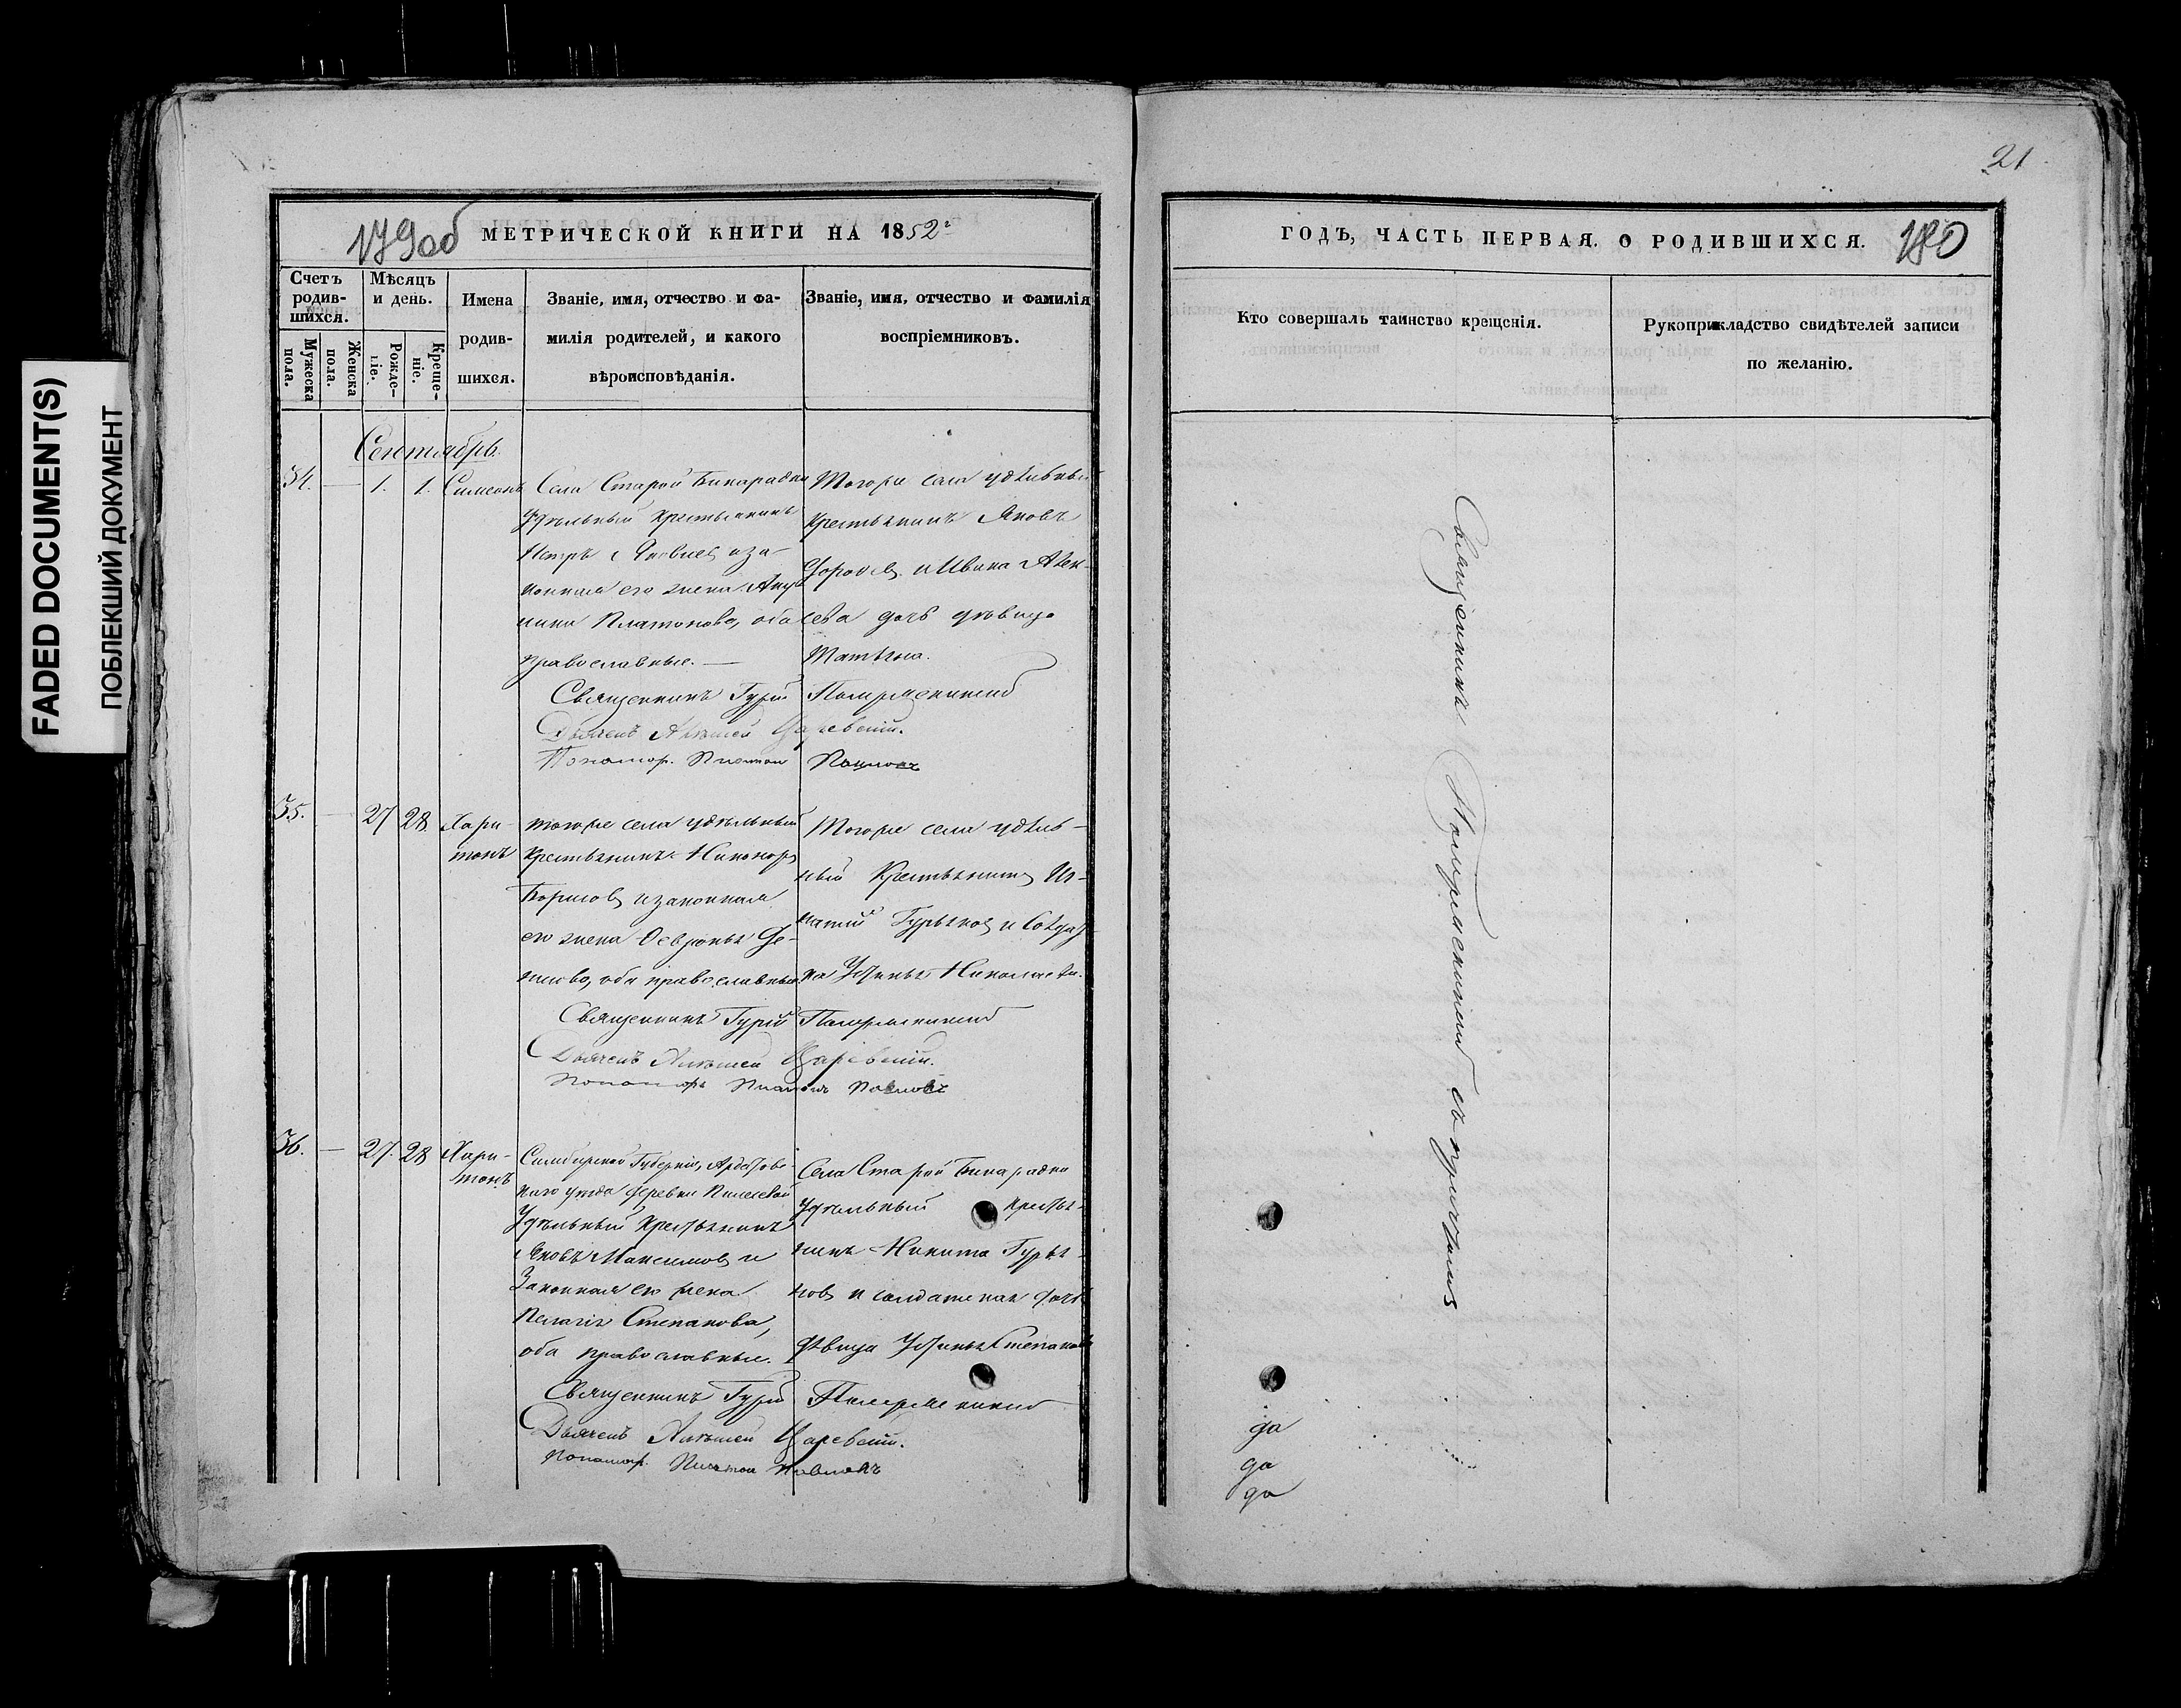 FADED DOCUMENT(S)
ПОБЛЕКШИЙ ДОКУМЕНТ
179об
МЕТРИЧЕСКОЙ КНИГИ НА 1852
Счетъ родив-шихся.
Мужеска пола.
Женска пола.
Мѣсяцъ и день.
Рожде-ніе.
Креще-ніе.
Имена родив-шихся.
Званіе, имя, отчество и фа-
милія родителей, и какого
вѣроисповѣданія.
Званіе, имя, отчество и фамилія
воспріемниковъ.
Сентябрь.
34. — 1. 1. Симеонъ
Села Старой Бинарадки
Удѣльный крестьянинъ
Петръ Яковлевъ и за-
конная его жена Аку-
лина Платонова, оба
православные. —
Тогоже села удѣльный
крестьянинъ Яковъ
дочь дѣвица
Татьяна.
Священникъ Гурій
Дьячекъ Алексѣй Царевскій.
Пономарь Платон Павловъ
35. — 27 28 Хари-
тонъ
тогоже села удѣльный
крестьянинъ Никоноръ
Борисовъ и законная
его жена Феврон
оба православные.
Тогоже села удѣль-
ный крестьянинъ Иг-
натій Гурьяновъ и
Устинья Николаева.
Священникъ Гурій
Дьячекъ Алексѣй Царевскій.
Пономарь Платонъ Павловъ
36. — 27. 28 Хари-
тонъ
Симбирской Губерніи, Ардатов-
скаго уѣзда деревни
Удѣльный крестьянинъ
Яковъ Максимовъ и
Законная его жена
Пелагія Степанова,
оба православные.
Села Старой Бинарадки
удѣльный крестья-
нинъ Никита Гурья-
новъ и солдатская дочь
дѣвица Устинья Степанова
Священникъ Гурій
Дьячекъ Алексѣй Царевскій.
Пономарь Платон Павловъ
21
ГОДЪ, ЧАСТЬ ПЕРВАЯ. О РОДИВШИХСЯ.
180
Кто совершалъ таинство крещенія.
Рукоприкладство свидѣтелей записи
по желанію.
Священникъ съ причтомъ
да
да
да